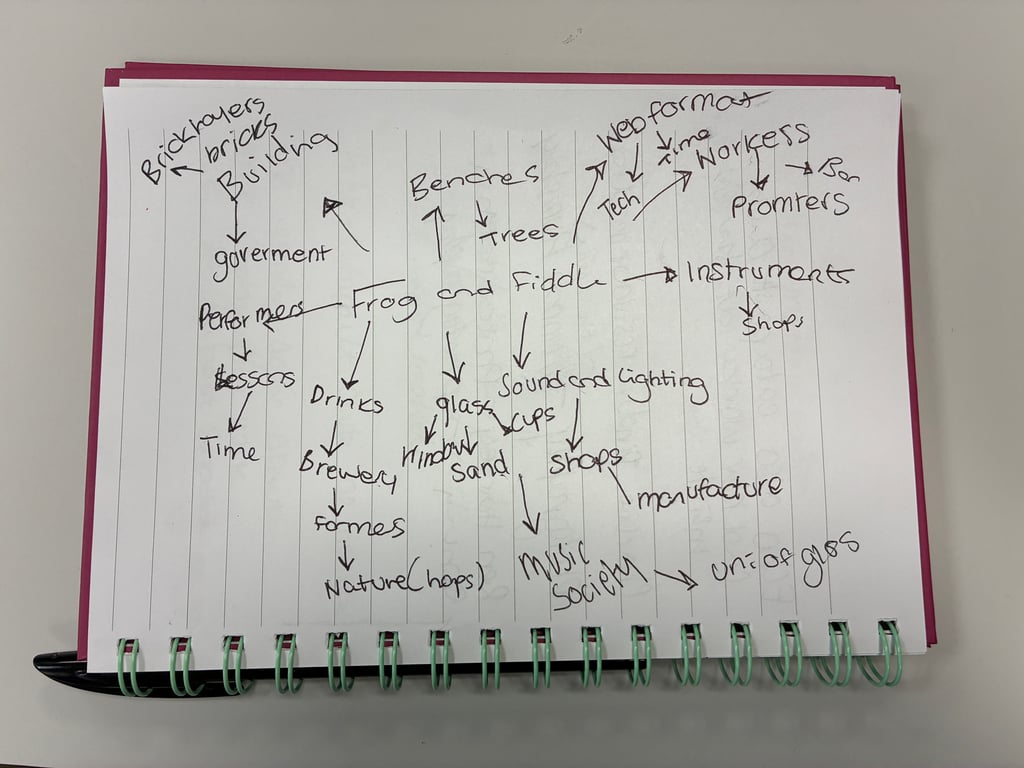 Bricklayers
bricks
Building
goverment
Benches
Trees
Web format
Time
Tech
Workess
Promters
Frog and Fiddle
Instruments
Shops
Performers
Lessons
Time
Drinks
Brewery
formes
Nature (hops)
glass
Window
Sand
cups
Sound and Lighting
Shops
manufacture
Music
Society
uni of glos